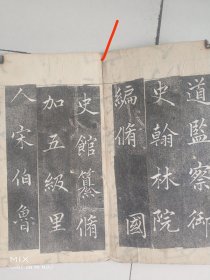 道監察御
史翰林院
編脩 國
史館纂脩
加五級里
人宋伯魯